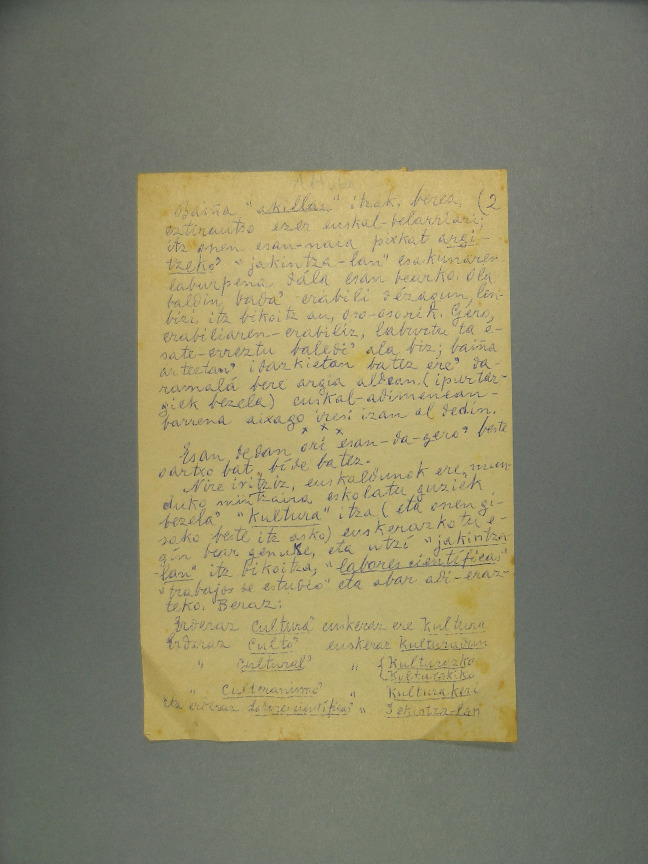 obaiña "akillan" itzak, berez, (2
eztirautso ezer euskal-belarriari;
itz onen esan-naia pixkat argi-
tzeko "jakintza-lan" esakunaren
laburpena dala esan bearko. Ola
baldin bada erabili dézagun, lin-
bizi, itz bikoitz au, oso-osorik. Gero,
erabiliaren-erabiliz, laburtu ta e-
sate-erreztu baledi ala biz; baiña
artean idazkietan batez ere da-
ramala bere argia aldean (ipurtar-
giek bezela) euskal-adimenean-
barrena aixago iresi izan al dedin.
x x x
Esan dedan ori esan-da-gero beste
sartxo bat, bide batez.
Nire iritziz, euskaldunok ere, mun-
duko mintzaira eskolatu guziek
bezela "Kultura" itza (eta onengi-
sako beste itz asko) euskerazkotu e-
gin bear genuke, eta utzi "jakintza-
lan" itz bikoitza, "labores cientificas"
"trabajos de estudio" eta abar adi-eraz-
teko. Beraz:
Erderaz Cultura euskeraz ere Kultura
Erderaz Culto euskeraz Kulturadun
" Cultural " { Kulturazko
Kulturakiko
" Culteranismo " Kulturakeri
Eta erderaz labores cientificas " Jakintza-lan